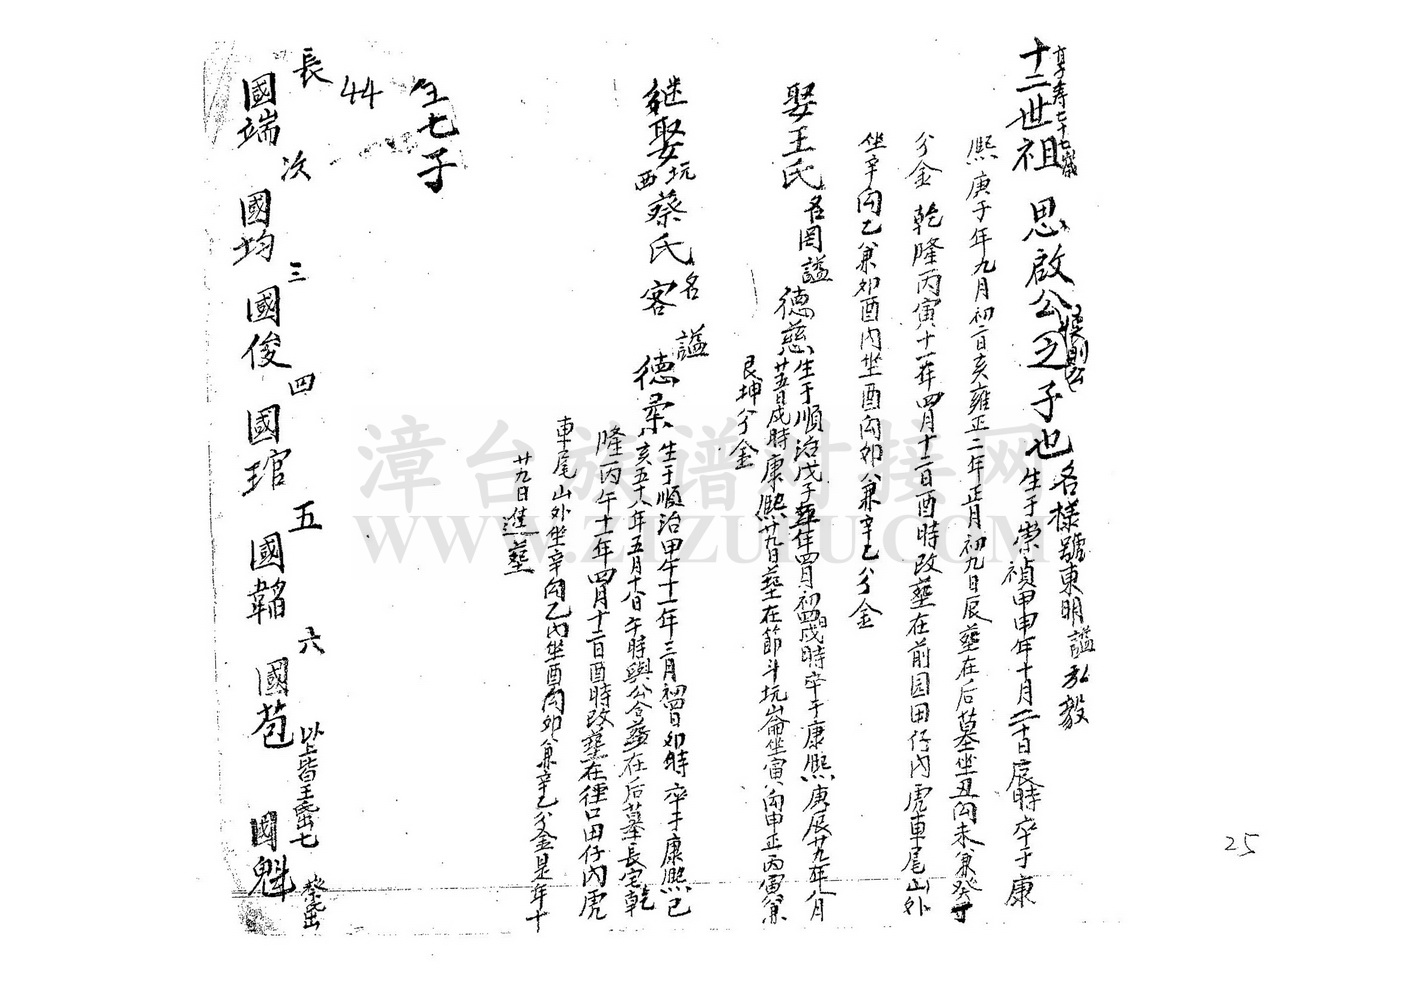 享寿七十七歲
十二世祖 思啟公之子也 名様號東明諡弘毅
生于崇禎甲申年十月二十日辰時卒于康
熙庚子年九月初二日亥雍正二年正月初九日辰塟在后墓坐丑向未兼癸丁
分金 乾隆丙寅十一年四月十二日酉時改塟在前园田仔内虎車尾山外
坐辛向乙兼卯酉内坐酉向卯兼辛乙分金
娶王氏 名罔諡德慈 生于順治戊子五年四月初四日戌時卒于康熙庚辰廿九年八月
廿五日戌時康熙廿九日塟在節斗坑崙坐寅向申正丙寅兼
艮坤分金
継娶西坑蔡氏 名客 諡德柔 生于順治甲午十一年三月初四日卯時卒于康熙己
亥五十八年五月十八日午時與公合塟在后墓長宅乾
隆丙午十一年四月十二日酉時改塟在徑口田仔内虎
車尾山外坐辛向乙内坐酉向卯兼辛乙分金是年十
廿九日進塟
生七子
44
長國端 次國均 三國俊 四國琯 五國韜 六國苞 以上皆王氏出 七國魁 蔡氏出
25
漳台族谱对接网
WWW.ZTZUPU.COM